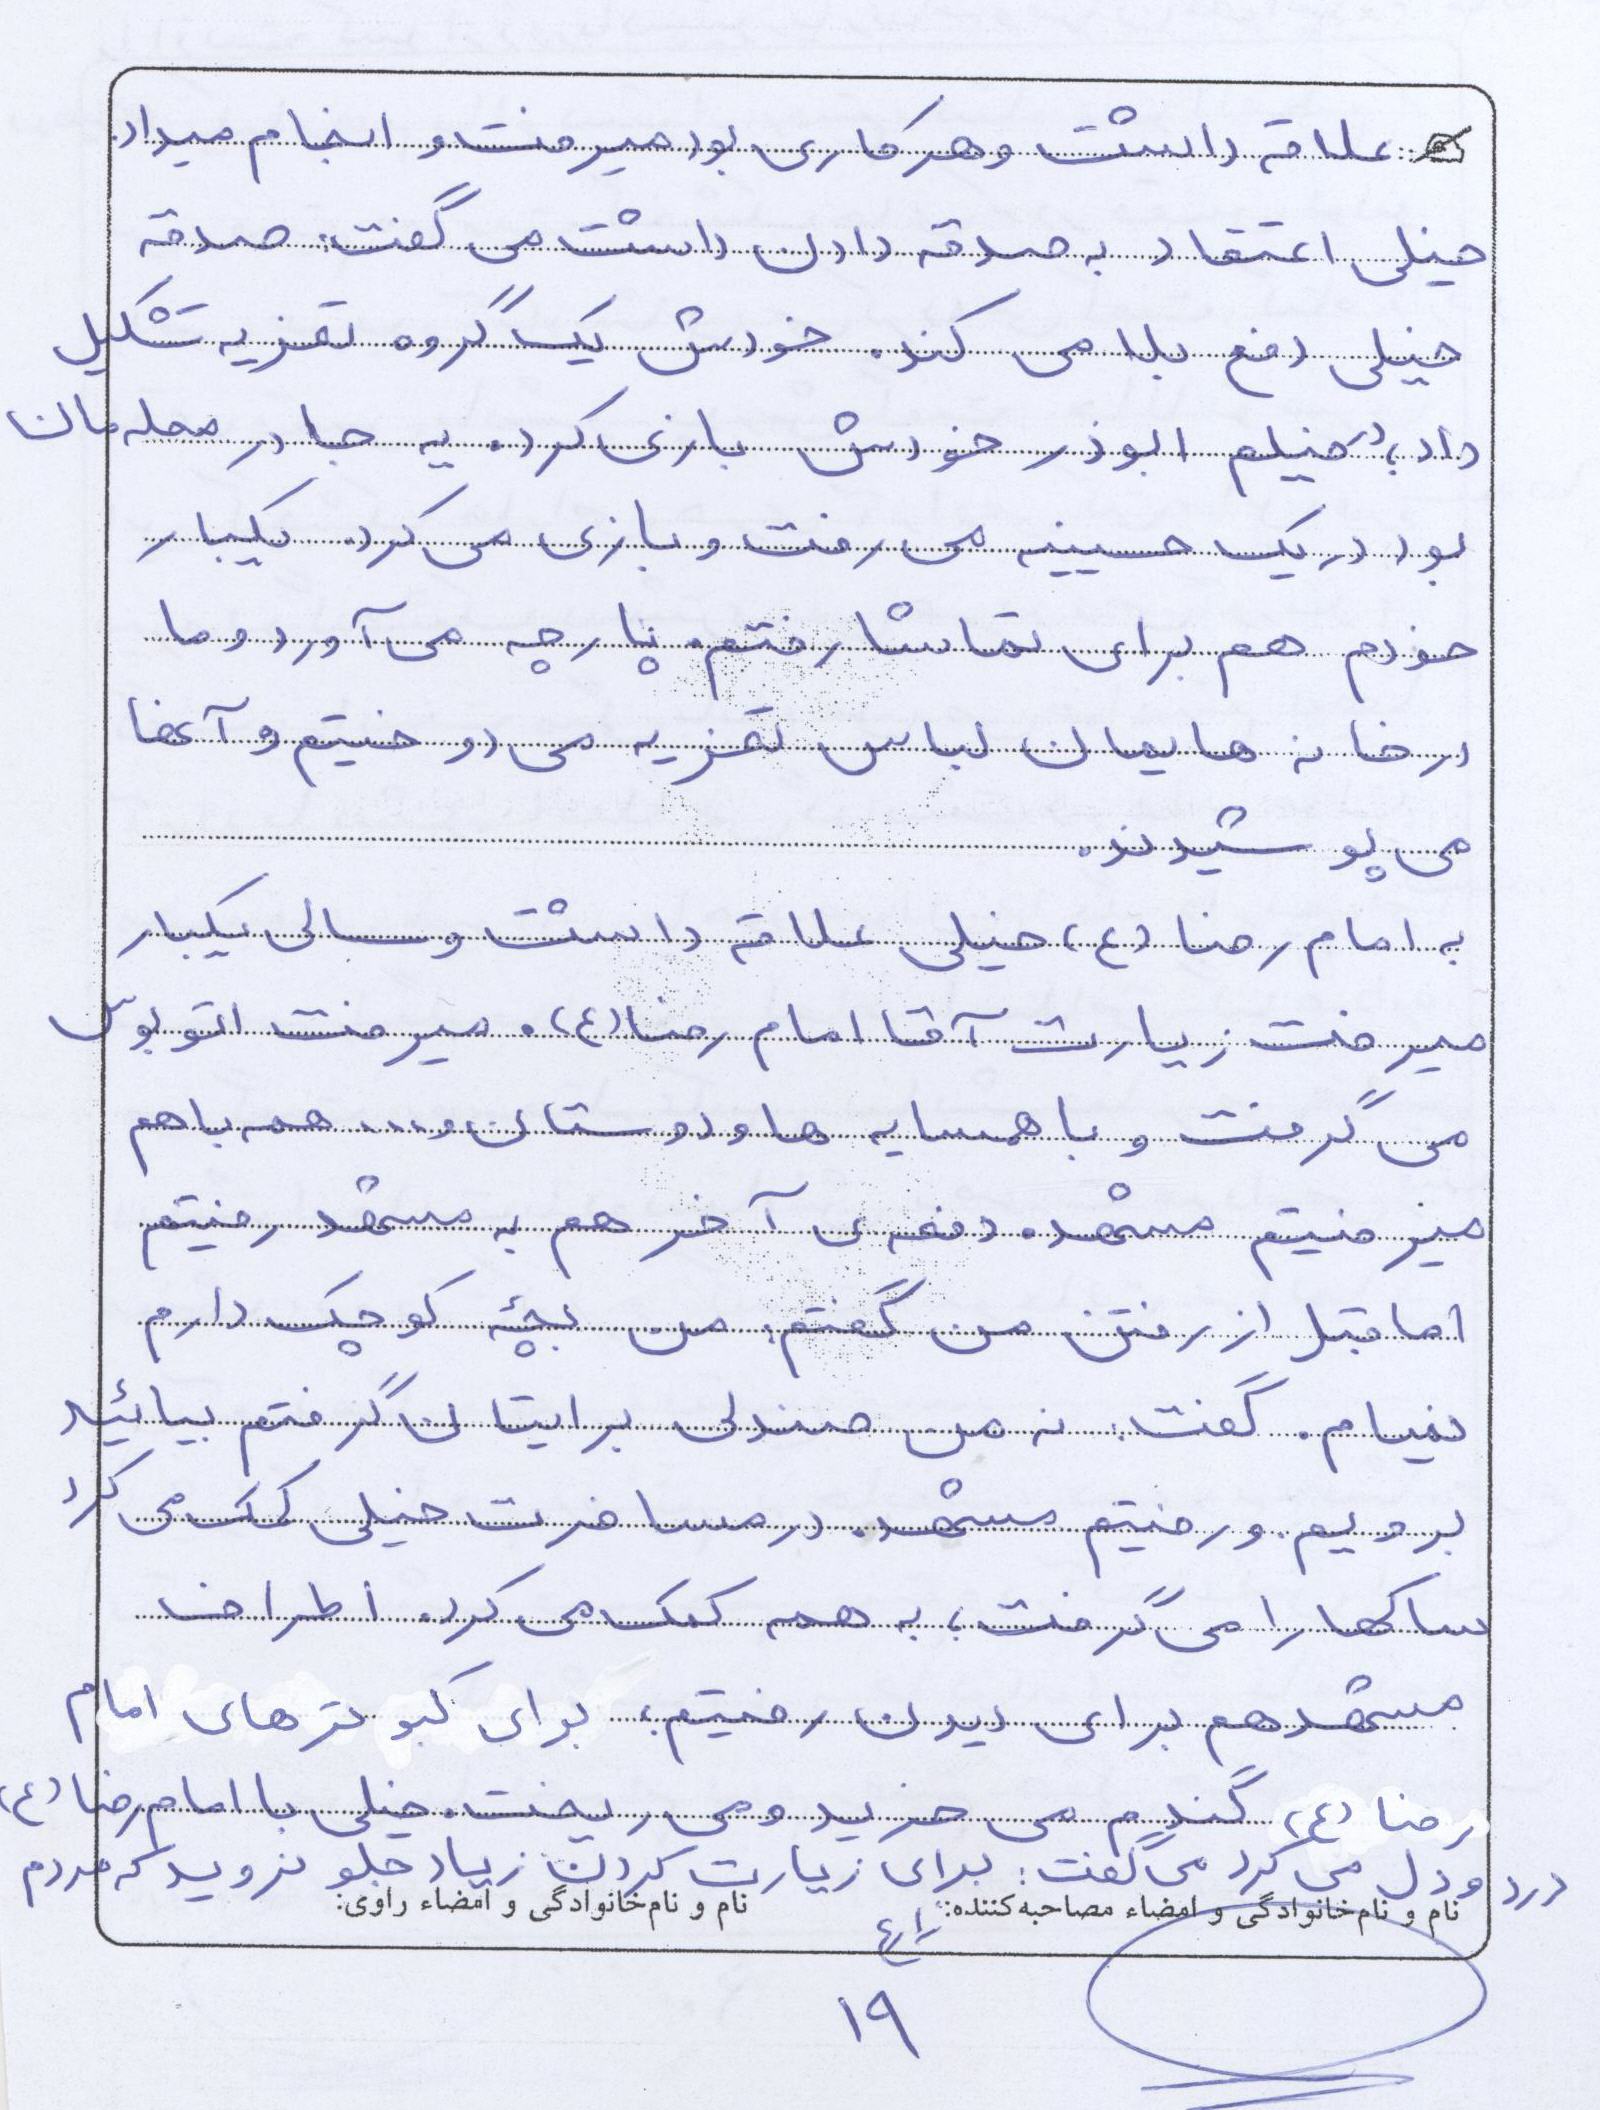 علاقه داشت و هر کاری بود میرفت و انجام میداد.
خیلی اعتقاد به صدقه دادن داشت می گفت: صدقه
خیلی دفع بلا می کند. خودش یک گروه تعزیه تشکیل
داد، در فیلم ابوذر خودش بازی کرد. یه جا در محله مان
بود در یک حسینیه می رفت و بازی می کرد. یکبار
خودم هم برای تماشا رفتم. پارچه می آورد و ما
در خانه هایمان لباس تعزیه می دوختیم و آنها
می پوشیدند.
به امام رضا (ع) خیلی علاقه داشت و سالی یکبار
میرفت زیارت آقا امام رضا (ع). میرفت اتوبوس
می گرفت و با همسایه ها و دوستان و... همه با هم
میرفتیم مشهد. دفعه ی آخر هم به مشهد رفتیم
اما قبل از رفتن من گفتم: من بچّه کوچک دارم
نمیام. گفت: نه من صندلی برایتان گرفتم بیائید
برویم. و رفتیم مشهد. در مسافرت خیلی کمک می کرد
ساکها را می گرفت، به همه کمک می کرد. اطراف
مشهد هم برای دیدن رفتیم، برای کبوترهای امام
رضا (ع) گندم می خرید و می ریخت. خیلی با امام رضا (ع)
درد و دل می کرد می گفت: برای زیارت کردن زیاد جلو نروید که مردم
نام و نام‌خانوادگی و امضاء مصاحبه‌کننده: نام و نام‌خانوادگی و امضاء راوی:
۱۹